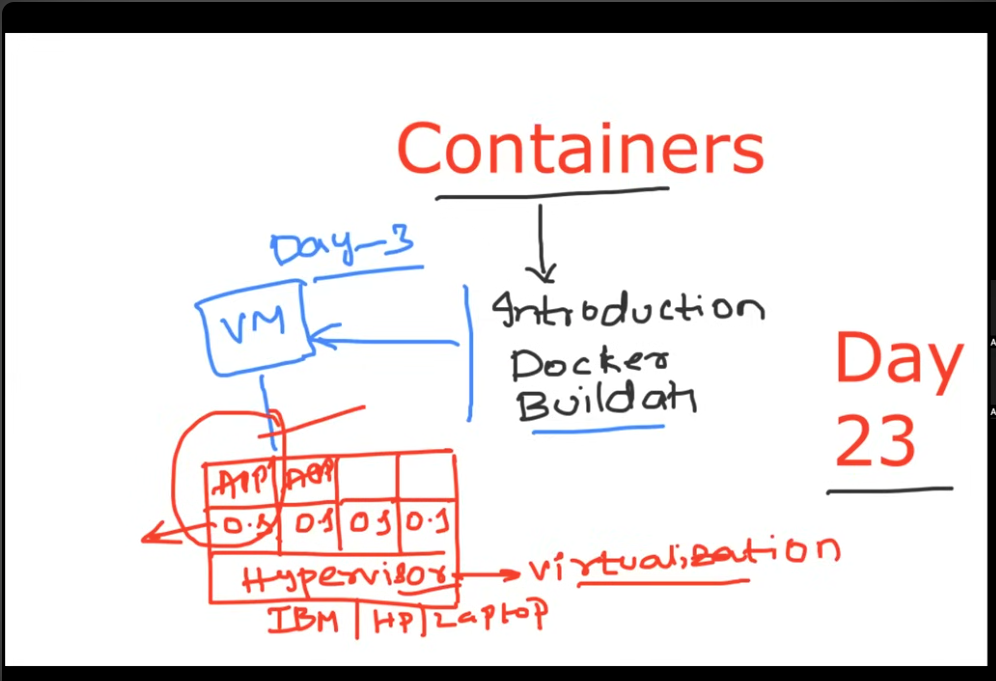 Containers
Day-3
VM
Introduction
Docker
Buildah
Day
23
APP APP
0.s 0s 0s 0.s
Hypervisor → virtualization
IBM | HP | Laptop